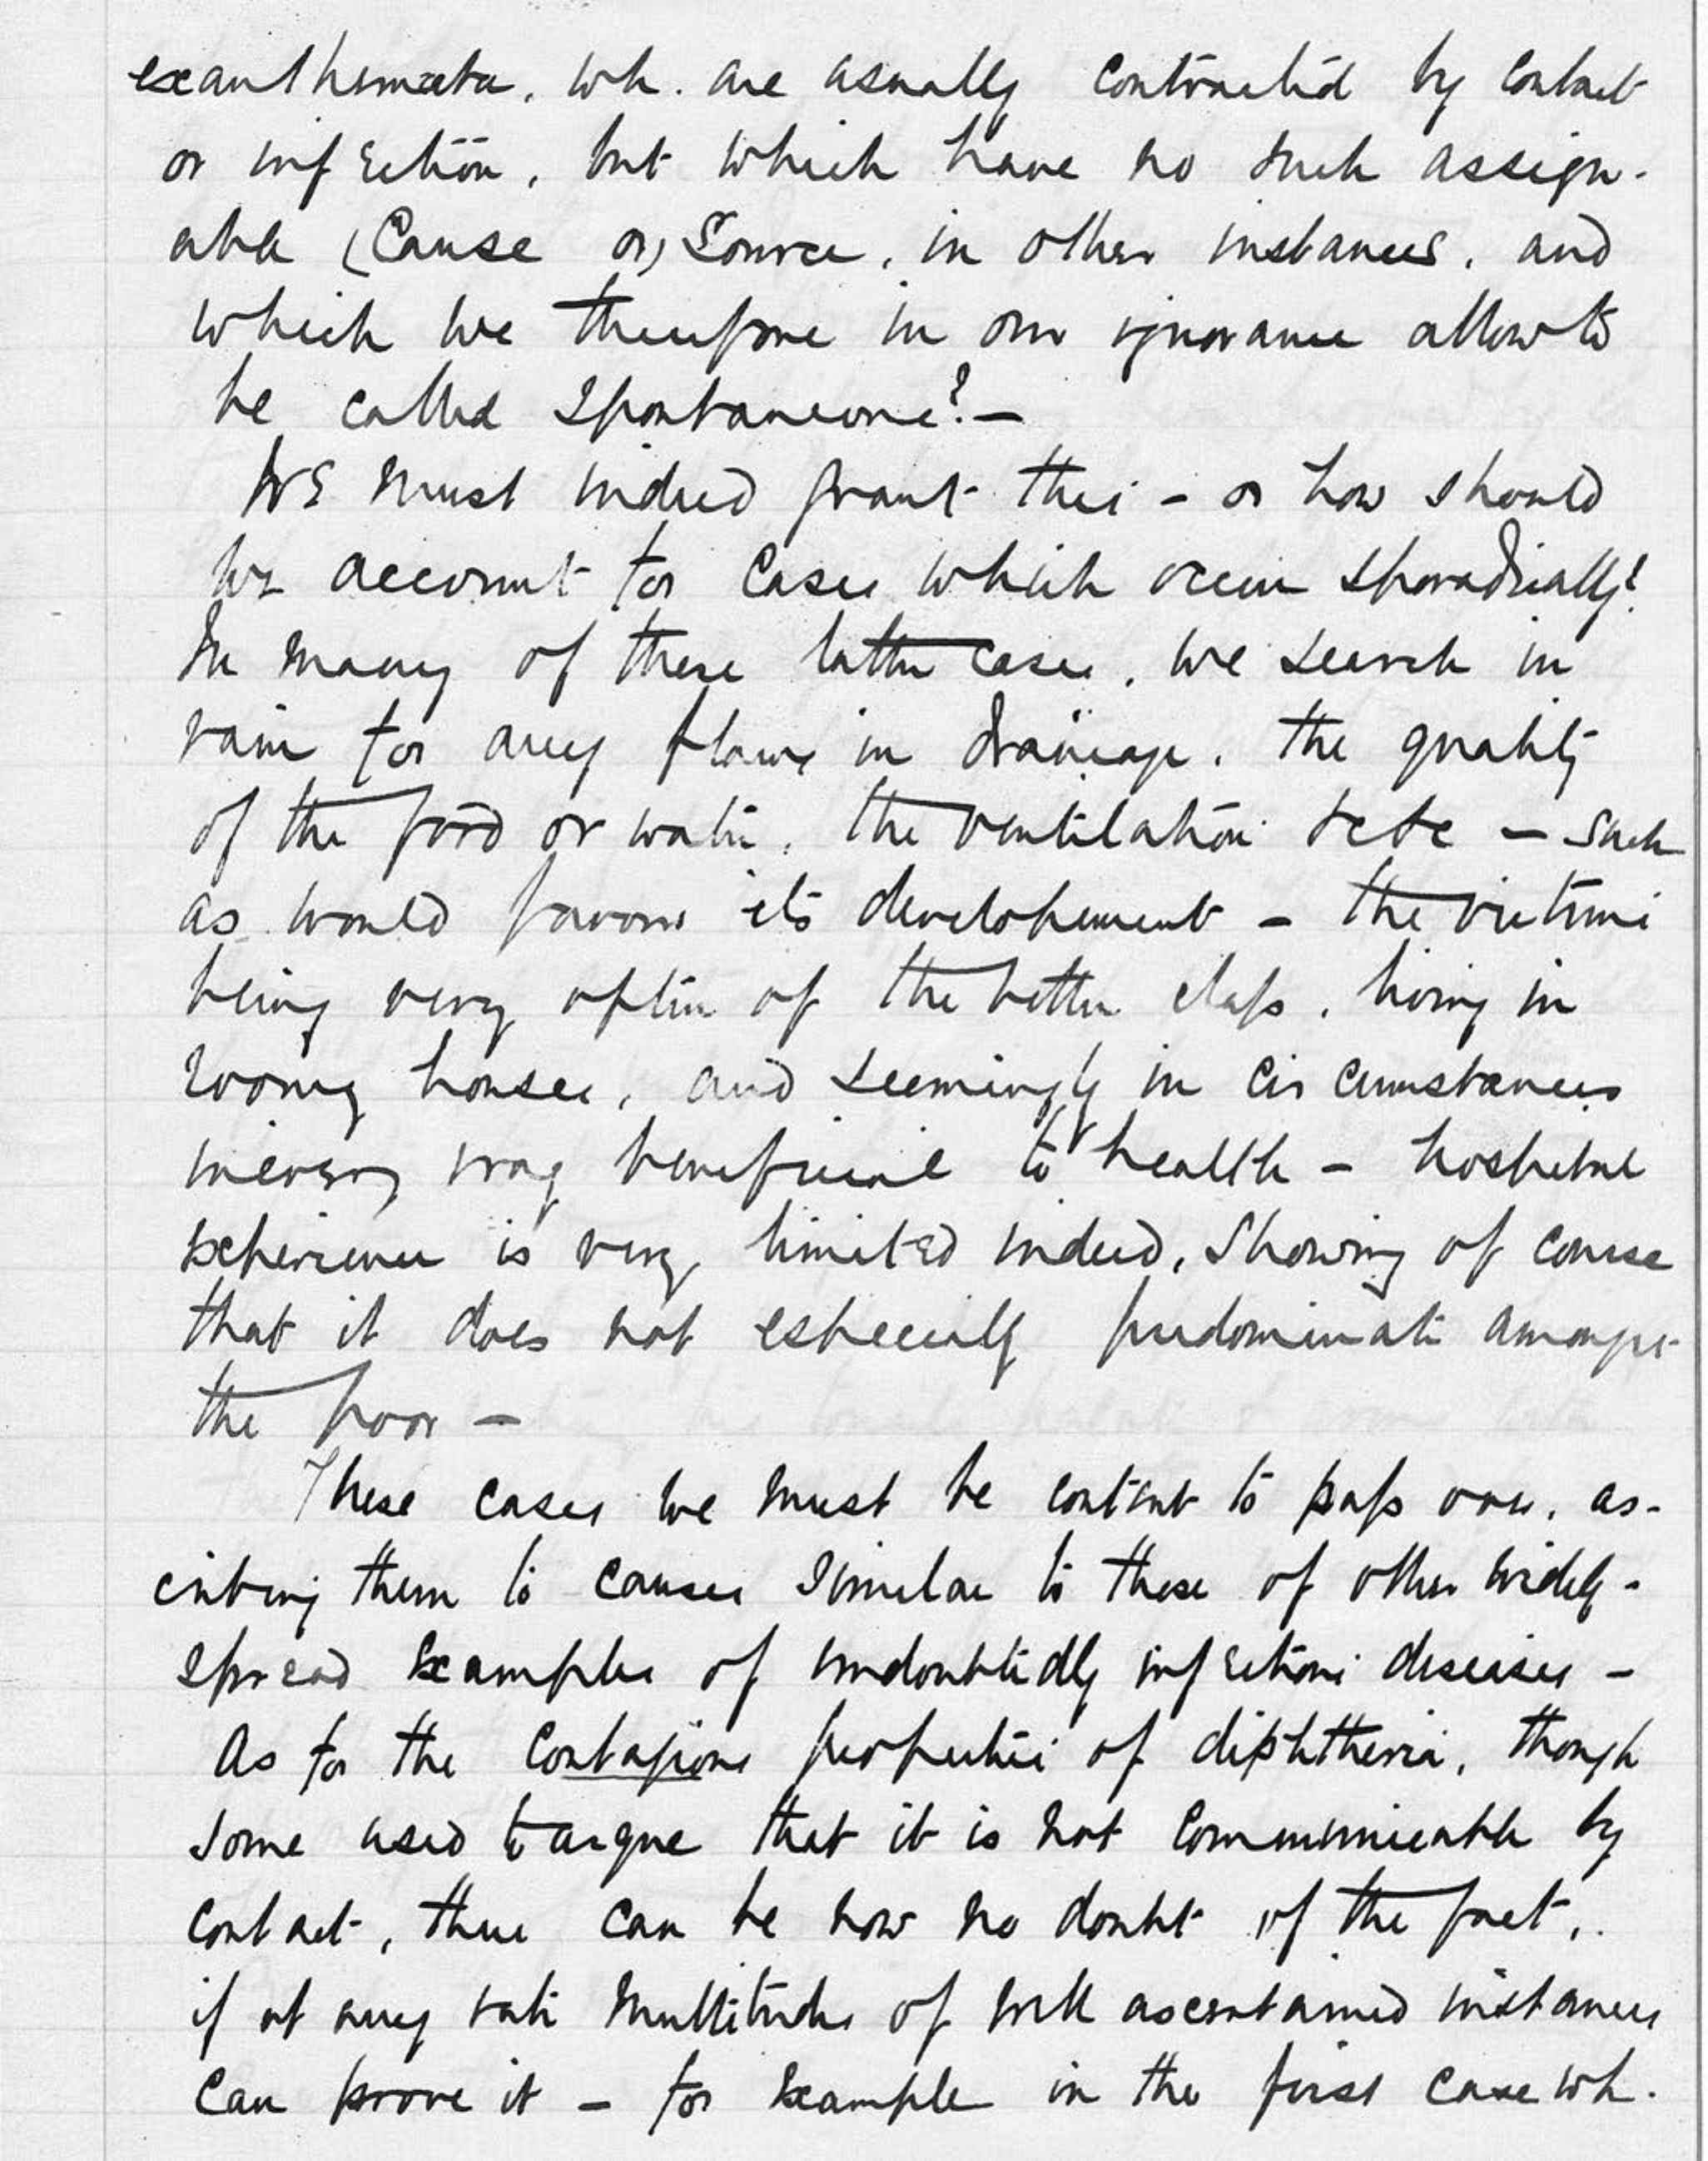 exanthemata, wh. are usually contracted by contact
or infection, but which have no such assign-
able (Cause or) Source, in other instances, and
which we therefore in our ignorance allow to
be called Spontaneous?—
We must indeed grant this - or how should
we account for Cases which occur sporadically?
In many of these latter cases, we search in
vain for any flaws in drainage, the quality
of the food or water, the ventilation &c &c — such
as would favour its developement — the victims
being very often of the better class, living in
roomy houses, and seemingly in circumstances
in every way beneficial to health — hospital
experience is very limited indeed, Showing of course
that it does not especially predominate amongst
the poor —
These cases we must be content to pass over, as-
cribing them to causes similar to those of other widely-
spread examples of undoubtedly infectious diseases —
As for the Contagious properties of diphtheria, though
some used to argue that it is not Communicable by
contact, there can be now no doubt of the fact,
if at any rate multitudes of well ascertained instances
can prove it — for example in the first case wh.